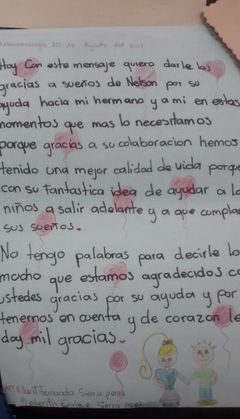 20 de Agosto del
Hoy Con este mensaje quiero darle las
gracias a sueños de Nelson por su
ayuda hacia mi hermano y a mi en estos
momentos que mas lo necesitamos
porque gracias a su colaboracion hemos
tenido una mejor calidad de vida porque
con su fantastica idea de ayudar a lo
niños a salir adelante y a que cumplan
sus sueños.
No tengo palabras para decirle lo
mucho que estamos agradecidos co
ustedes gracias por su ayuda y por
tenernos en cuenta y de corazon le
doy mil gracias.
Fernanda Sierra perez
Enrique Sierra